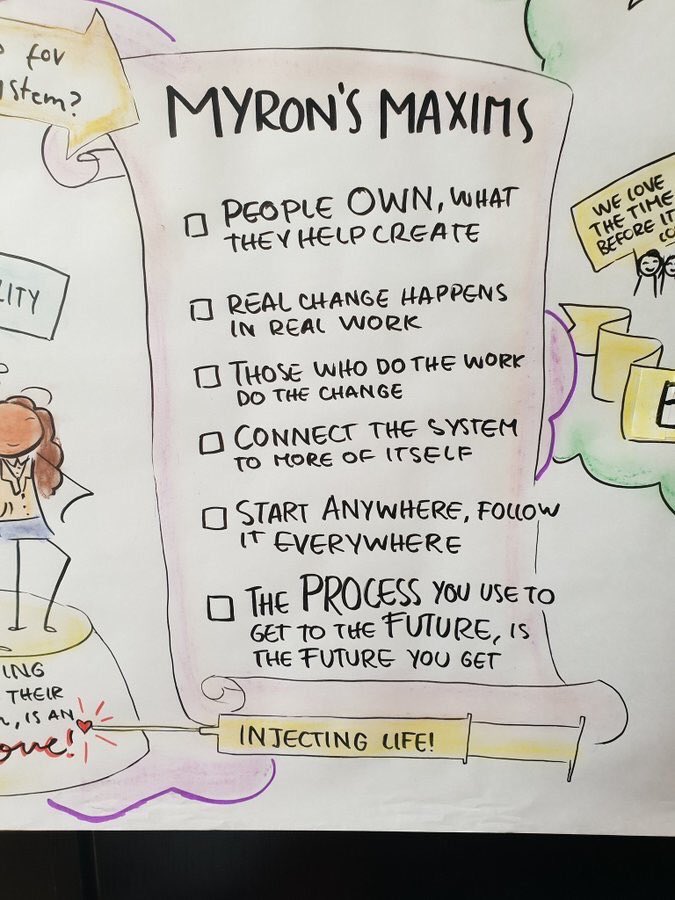 for
stem?
MYRON'S MAXIMS
PEOPLE OWN, WHAT
THEY HELP CREATE
REAL CHANGE HAPPENS
IN REAL WORK
THOSE WHO DO THE WORK
DO THE CHANGE
CONNECT THE SYSTEM
TO MORE OF ITSELF
START ANYWHERE, FOLLOW
IT EVERYWHERE
THE PROCESS YOU USE TO
GET TO THE FUTURE, IS
THE FUTURE YOU GET
INJECTING LIFE!
WE LOVE
THE TIME
BEFORE IT
LITY
ING
THEIR
, IS AN
ove!